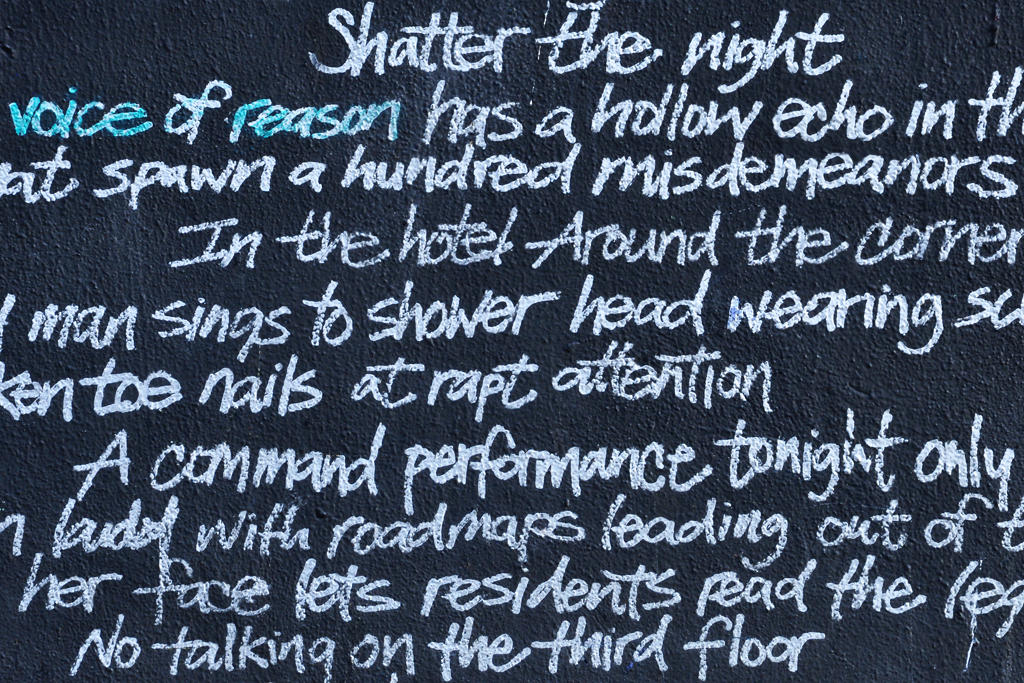 Shatter the night
voice of reason has a hollow echo in th
at spawn a hundred misdemeanors
In the hotel Around the corner
man sings to shower head wearing su
ken toe nails at rapt attention
A command performance tonight only
n laddy with roadmaps leading out of t
her face lets residents read the leg
No talking on the third floor